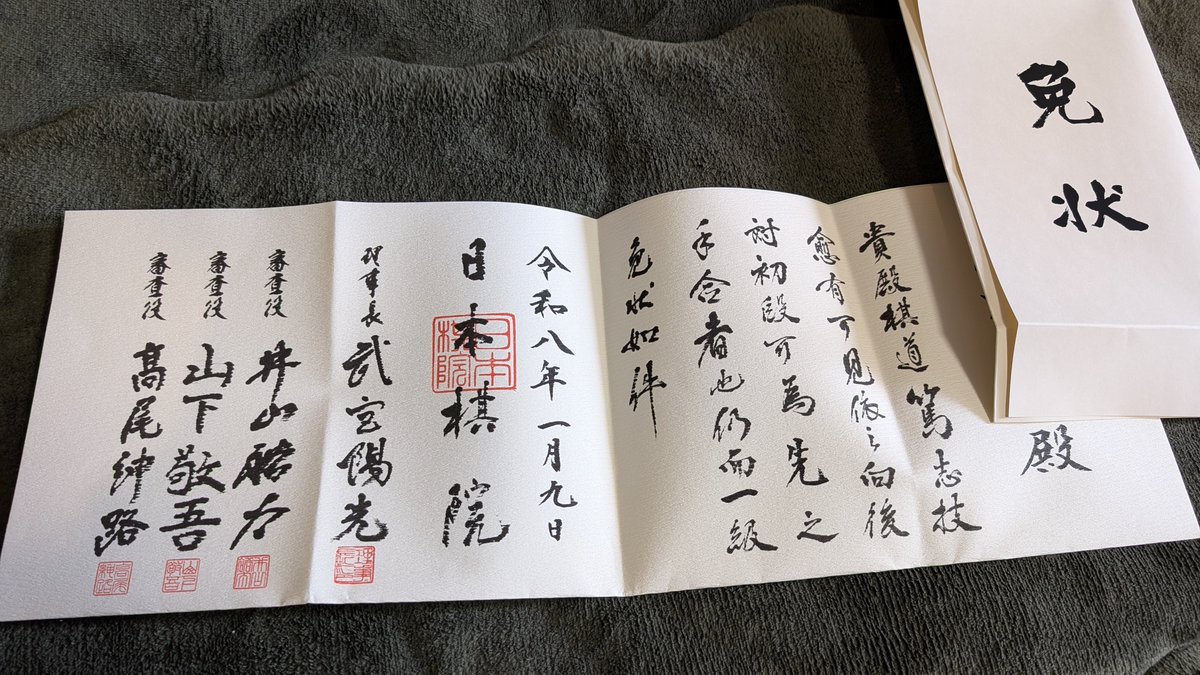 免状
殿
貴殿棋道篤志技
愈有可見依之向後
対初段可為先之
手合者也仍而一級
免状如件
令和八年一月九日
日本棋院
日本棋院
理事長 武宮陽光
審査役 井山裕太
審査役 山下敬吾
審査役 高尾紳路